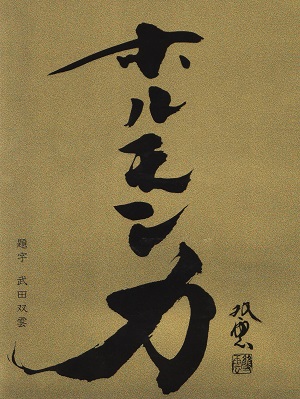 ホルモン力
双雲
題字 武田双雲